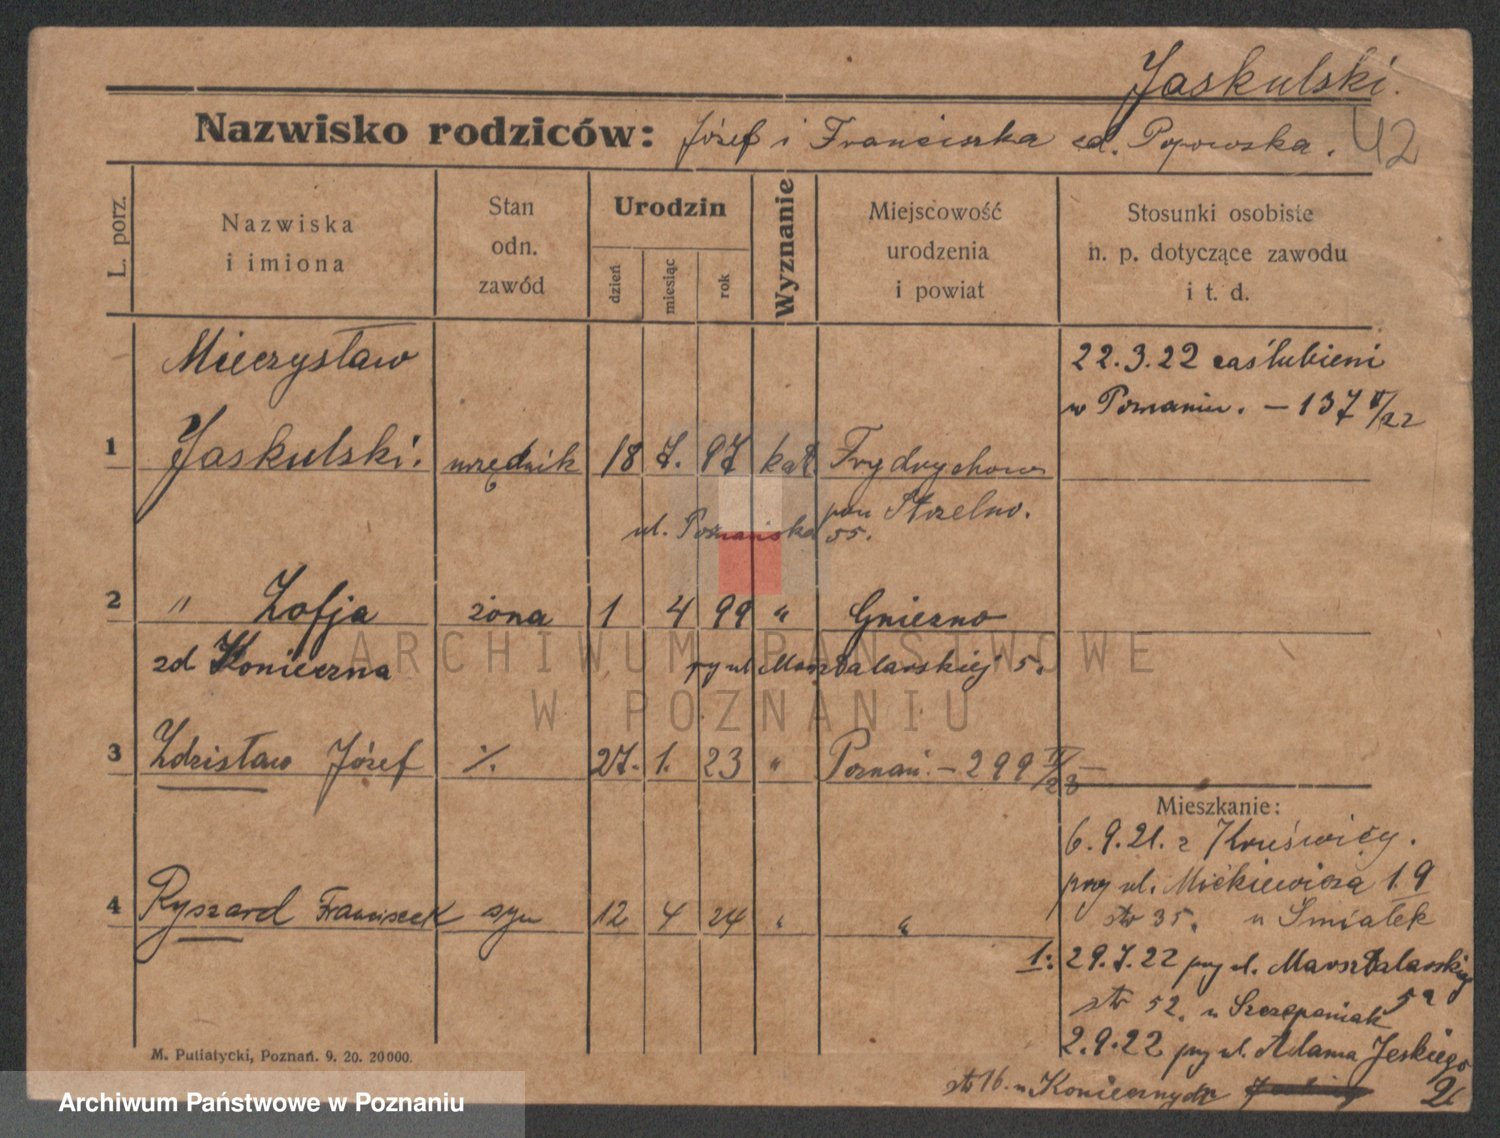 Jaskulski.
Nazwisko rodziców: Józef i Franciszka zd. Popowska.
42
L. porz.
Nazwiska
i imiona
Stan
odn.
zawód
Urodzin
dzień
miesiąc
rok
Wyznanie
Miejscowość
urodzenia
i powiat
Stosunki osobiste
n. p. dotyczące zawodu
i t. d.
Mieczysław
22.3.22 zaślubieni
w Poznaniu. – 137 II/22
1 Jaskulski. urzędnik 18 7. 97 kat. Frydrychowo
pow Strzelno.
ul. Poznańska 55.
2 " Zofja żona 1 4 99 " Gniezno
zd Konieczna
pry ul Marsztalarskiej 5.
ARCHIWUM PAŃSTWOWE
W POZNANIU
3 Zdzisław Józef ·/. 27. 1. 23 " Poznań. – 299 II/23 –
Mieszkanie:
6.9.21. z Kruświcy.
pry ul. Mickiewicza 19
str 35. u Śmiałek
4 Ryszard Franciszek syn 12 4 24 " "
1: 29.7.22 pry ul. Marsztalarskiej
5a
str 52. u Szczepaniak
2.9.22 pry ul. Adama Jeskiego
2
str 16. u Konieczny
M. Putiatycki, Poznań. 9. 20. 20000.
Archiwum Państwowe w Poznaniu